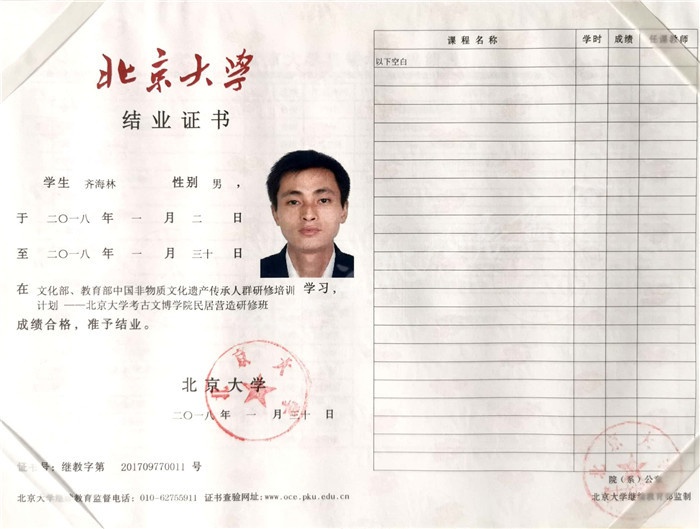 北京大学
结业证书
学生 齐海林 性别 男，
于 二〇一八 年 一 月 二 日
至 二〇一八 年 一 月 三十 日
在 文化部、教育部中国非物质文化遗产传承人群研修培训 学习，
计划 ——北京大学考古文博学院民居营造研修班
成绩合格，准予结业。
北京大学
二〇一八 年 一 月 三十 日
证书号：继教字第 201709770011 号
北京大学继续教育监督电话：010-62755911 证书查验网址：www.oce.pku.edu.cn
课程名称 学时 成绩 任课教师
以下空白
院（系）公章
北京大学继续教育部监制
北京大学